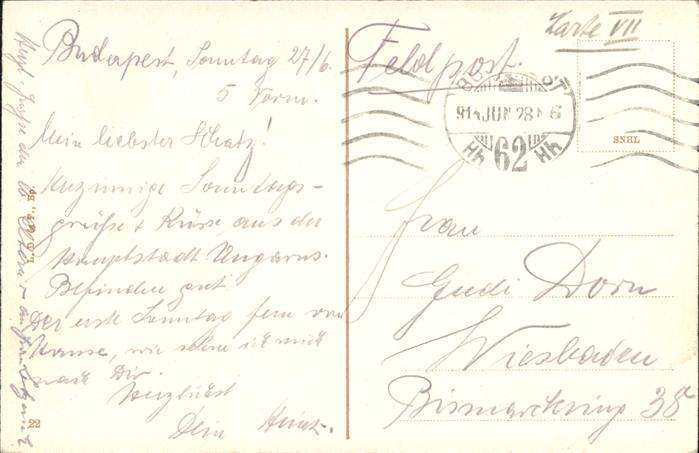 Budapest, Sonntag 27/6.
5 Vorm.
Mein liebster Schatz!
Herzinnige Sonntags-
grüße & Küsse aus der
Hauptstadt Ungarns.
Befinden gut
Der erste Sonntag fern von
Hause, wie sehne ich mich
nach Dir.
Herzlichst
Dein Heinz.
Herzl. Grüße den lb. Eltern
22
Feldpost.
Karte VII
BUDAPEST
914 JUN 28
62
Hh Hh
SNHL
Frau
Gudi Dorn
Wiesbaden
Bismarckring 38